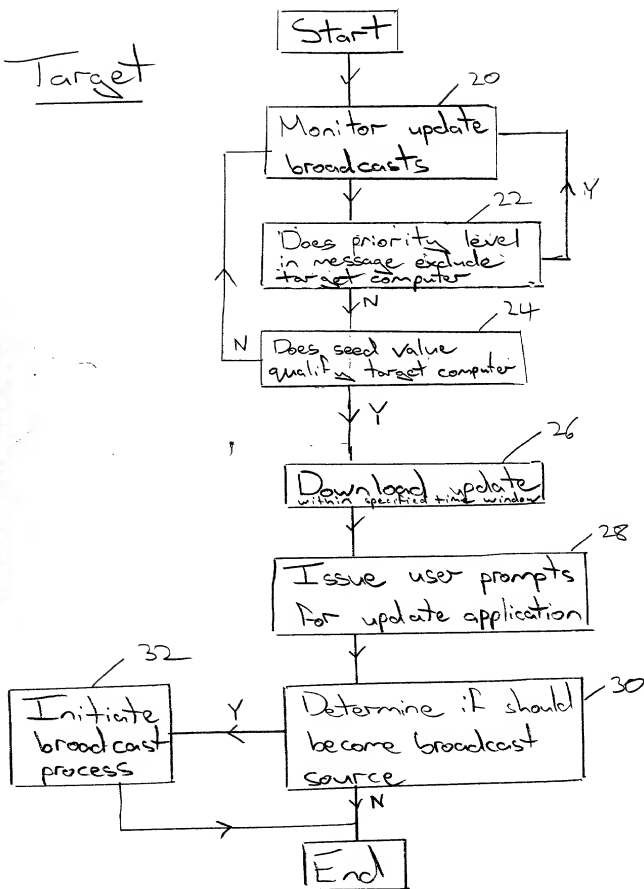 Start
Target
20
Monitor update
broadcasts
Y
22
Does priority level
in message exclude
target computer
N
24
N
Does seed value
qualify target computer
Y
26
Download update
within specified time window
28
Issue user prompts
for update application
32
30
Initiate
broadcast
process
Y
Determine if should
become broadcast
source
N
End